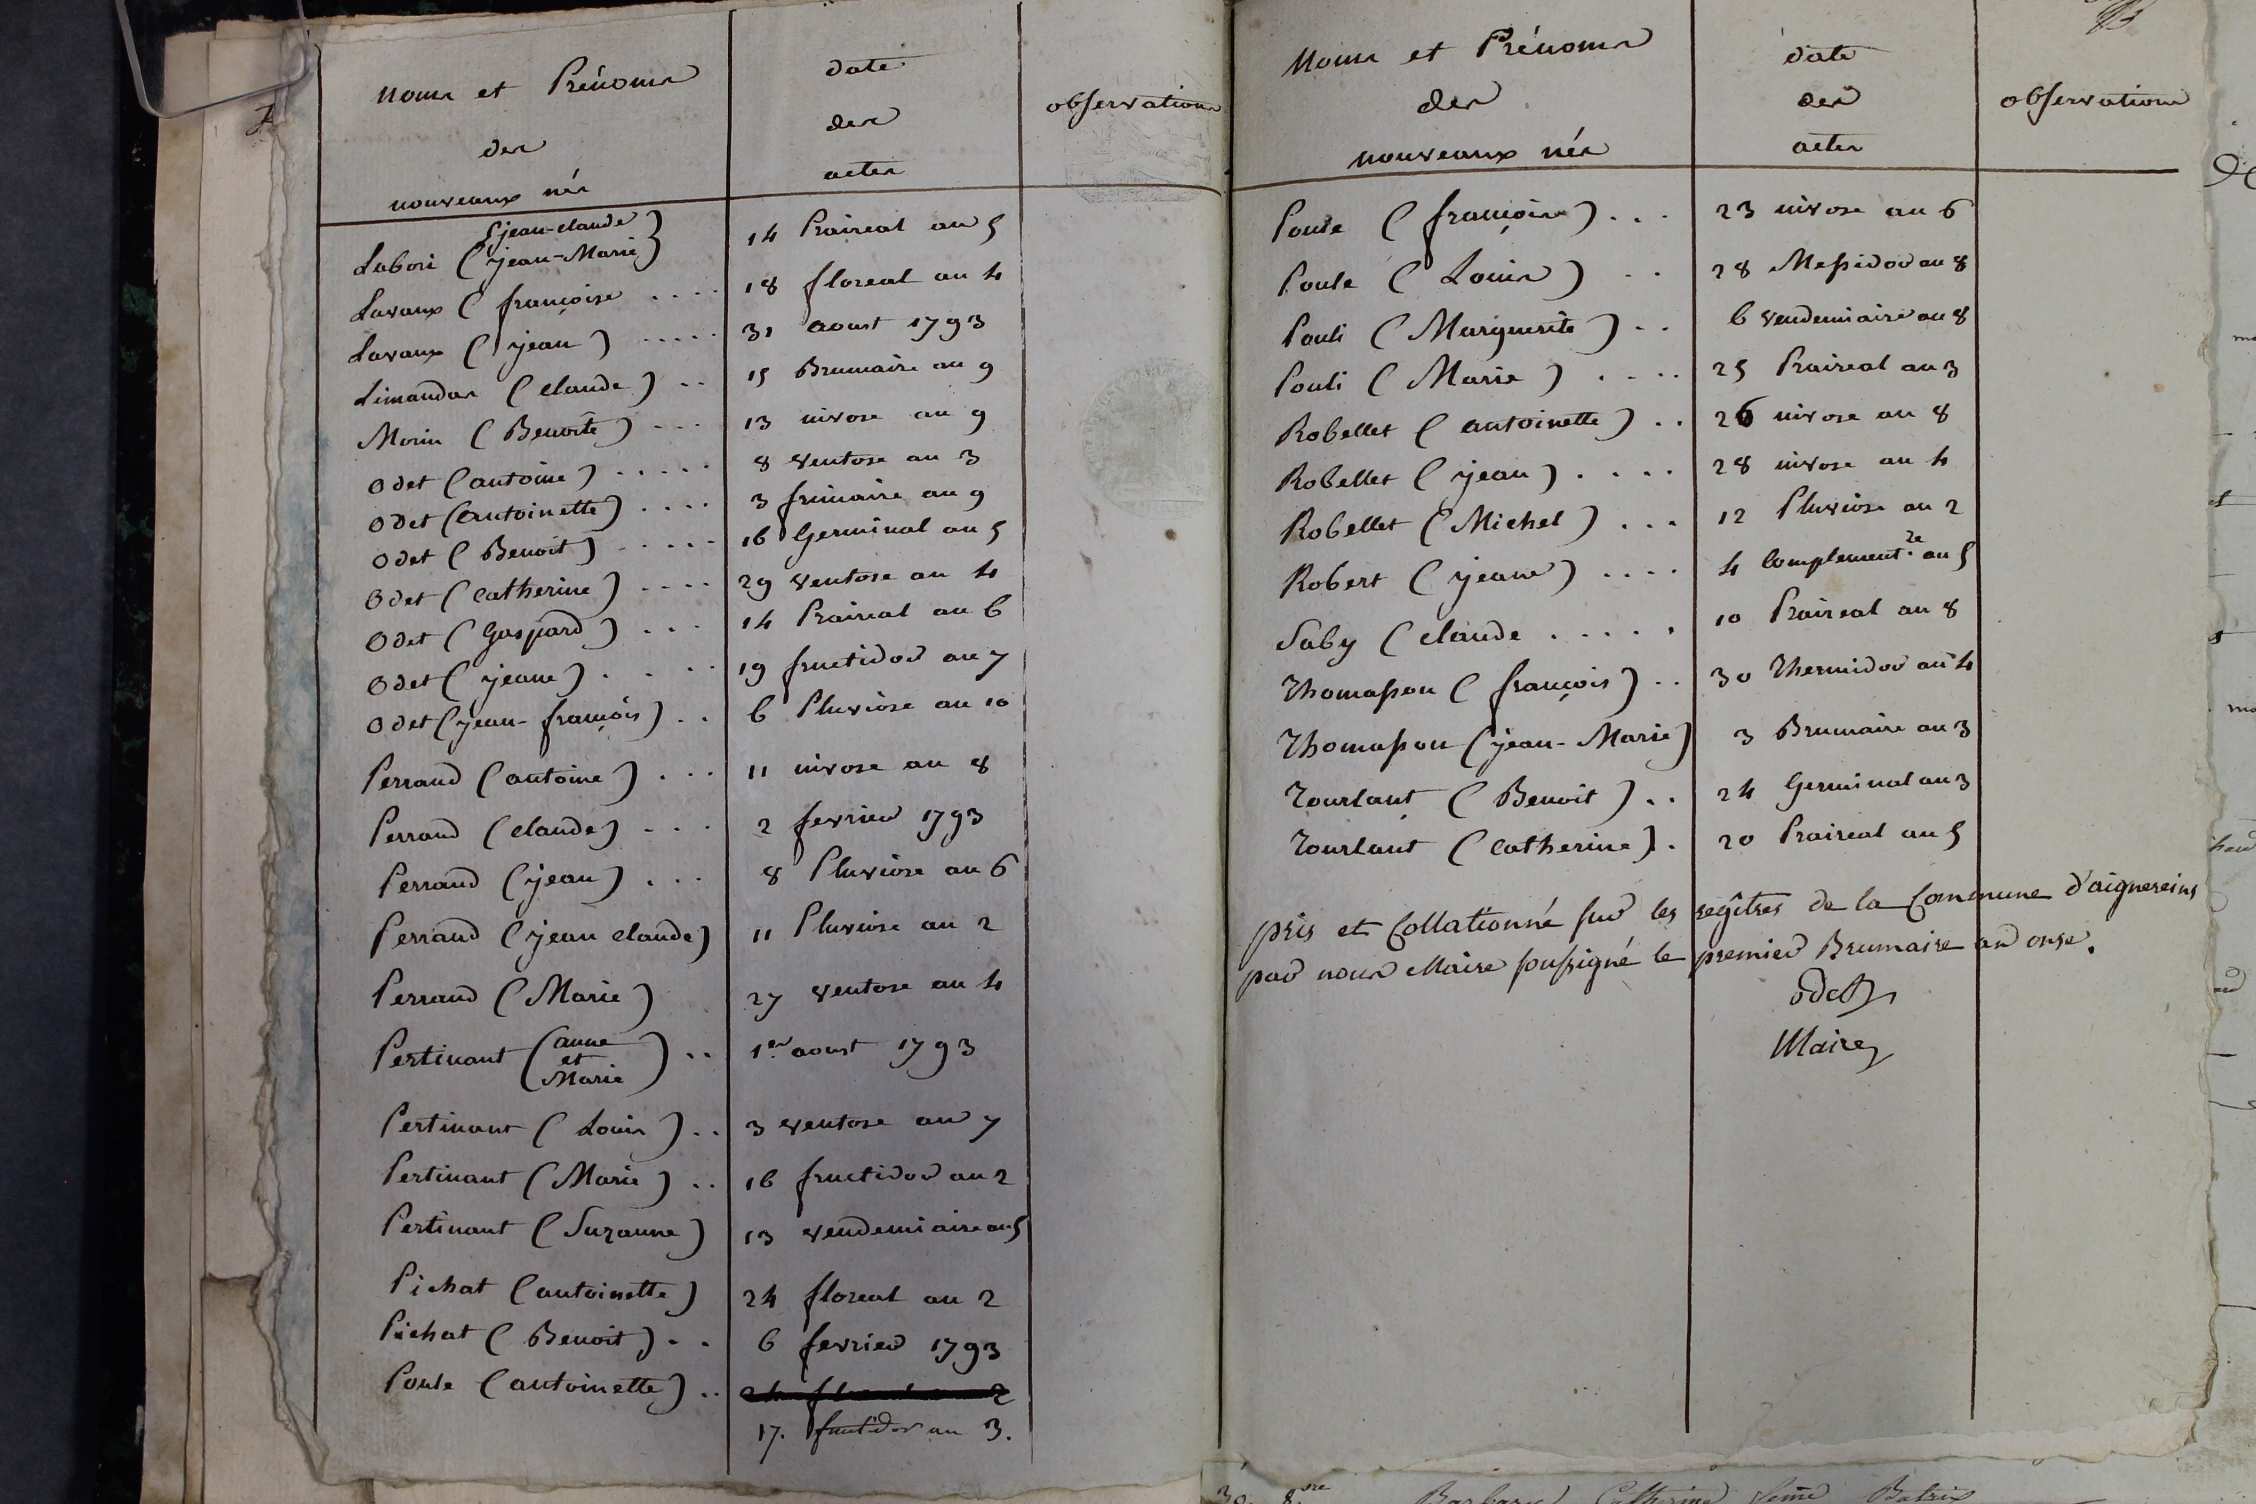 noms et Prénoms
des
nouveaux nés
date
des
actes
observations
Labori (jean-claude
jean-Marie) 14 Praireal an 5
Lavaux (françoise .... 18 floreal an 4
Lavaux (jean) ..... 31 aoust 1793
Limandas (claude) .. 15 Brumaire an 9
Morin (Benoîte) ... 13 nivose an 9
Odet (antoine) ..... 8 ventose an 3
Odet (antoinette) .... 3 frimaire an 9
Odet (Benoit) ..... 16 Germinal an 5
Odet (catherine) .... 29 ventose an 4
Odet (Gaspard) ... 14 Praireal an 6
Odet (jeane) .... 19 fructidor an 7
Odet (jean-françois) .. 6 Pluviose an 10
Perraud (antoine) ... 11 nivose an 8
Perraud (claude) ... 2 fevrier 1793
Perraud (jean) ... 8 Pluviose an 6
Perraud (jean claude) 11 Pluviose an 2
Perraud (Marie) 27 ventose an 4
Pertinant (anne
et
Marie) .. 1er aoust 1793
Pertinant (Louis) .. 3 ventose an 7
Pertinant (Marie) .. 16 fructidor an 2
Pertinant (Suzanne) 13 vendemiaire an 5
Pichat (antoinette) 24 floreal an 2
Pichat (Benoit) .. 6 fevrier 1793
Poule (antoinette) ..
17. fructidor an 3.
Noms et Prénoms
des
nouveaux nés
date
des
actes
observations
Poule (françoise) ... 23 nivose an 6
Poule (Louis) .. 28 Messidor an 8
Pouli (Marguerite) .. 6 vendemiaire an 8
Pouli (Marie) .... 25 Praireal an 3
Robellet (antoinette) .. 26 nivose an 8
Robellet (jean) .... 28 nivose an 4
Robellet (Michel) ... 12 Pluviose an 2
Robert (jeane) .... 4 complement.re an 5
Saby (claude ..... 10 Praireal an 8
Thomasson (françois) .. 30 Thermidor an 4
Thomasson (jean-Marie) 3 Brumaire an 3
Tourlant (Benoit) .. 24 Germinal an 3
Tourlant (catherine) . 20 Praireal an 5
pris et Collationné sur les regîtres de la Commune d'aignereins
par nous Maire soussigné le premier Brumaire an onze.
odet
Maire
Barbary Catherine feme Batrix